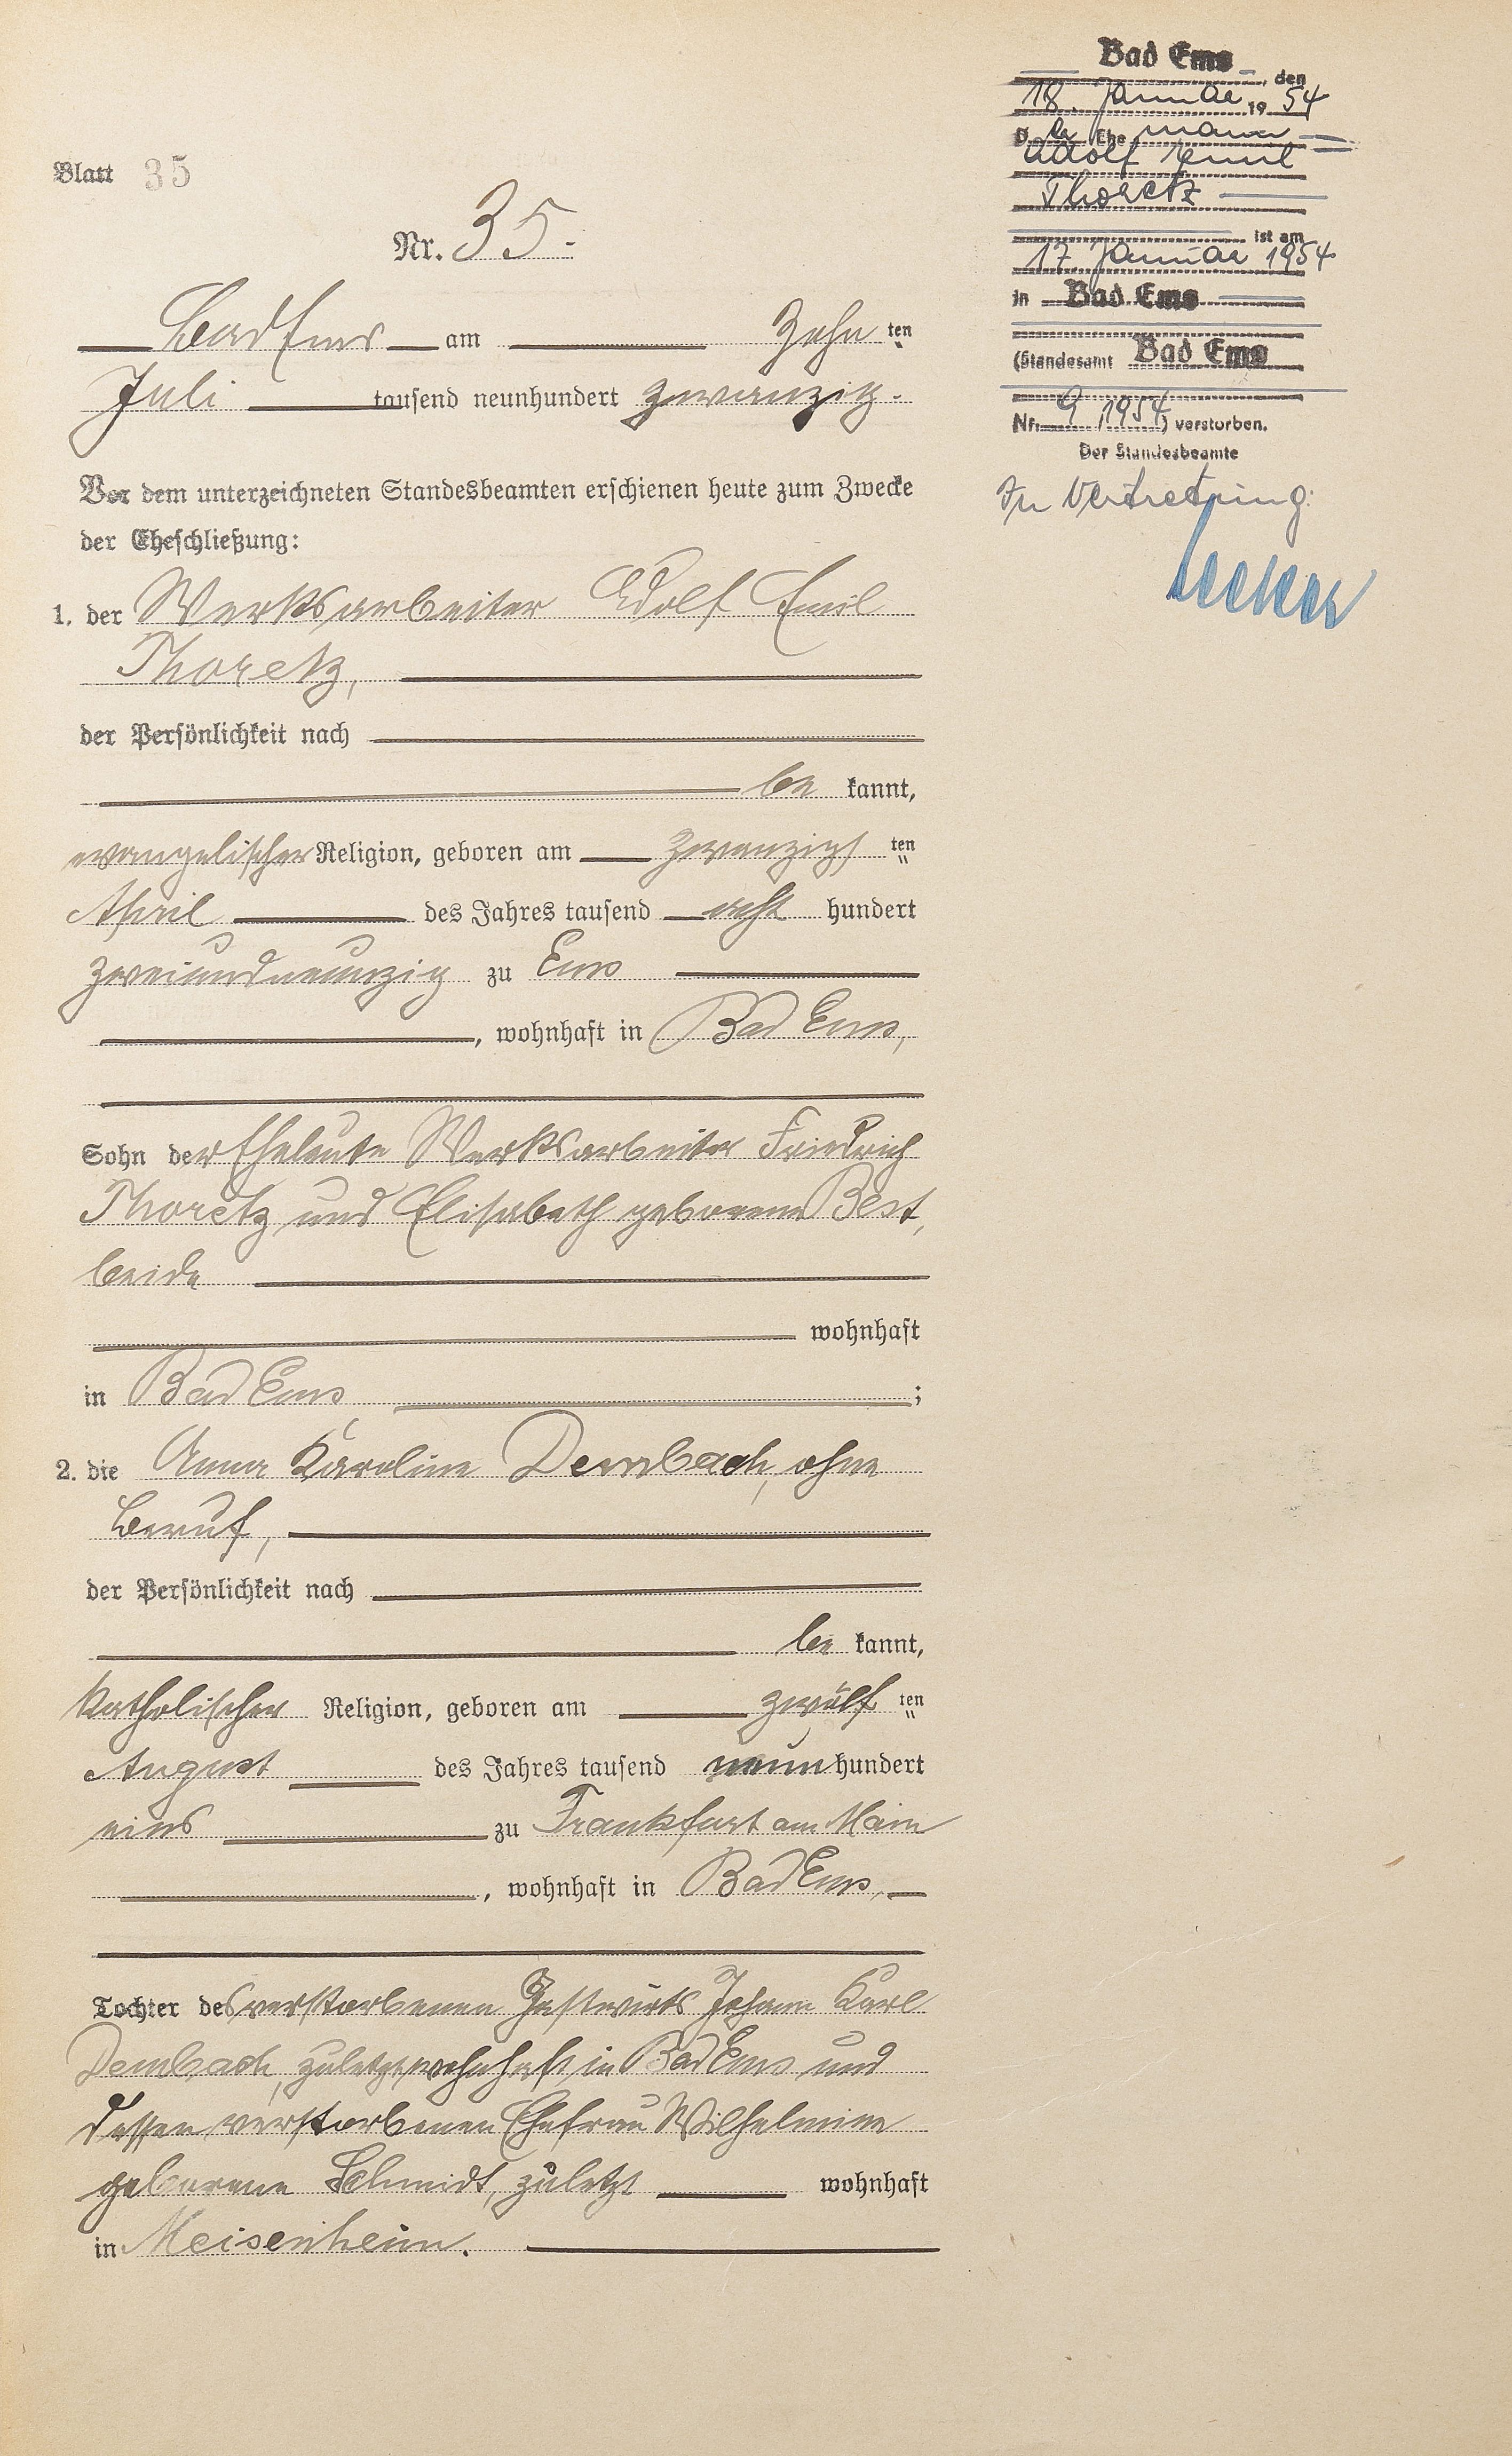 Blatt 35
Nr. 35.
Bad Ems am Zehn ten
Juli tausend neunhundert zwanzig.
Vor dem unterzeichneten Standesbeamten erschienen heute zum Zwecke
der Eheschließung:
1. der Werksarbeiter Adolf Emil
Thoretz,
der Persönlichkeit nach
be kannt,
evangelischer Religion, geboren am zwanzigs ten
April des Jahres tausend acht hundert
zweiundneunzig zu Ems
, wohnhaft in Bad Ems,
Sohn der Eheleute Werksarbeiter Friedrich
Thoretz und Elisabeth geborene Best,
beide
wohnhaft
in Bad Ems ;
2. die Anna Karoline Dembach, ohne
Beruf,
der Persönlichkeit nach
be kannt,
katholischer Religion, geboren am zwölf ten
August des Jahres tausend neun hundert
eins zu Frankfurt am Main
, wohnhaft in Bad Ems,
Tochter des verstorbenen Gastwirts Johann Karl
Dembach, zuletzt wohnhaft in Bad Ems und
dessen verstorbenen Ehefrau Wilhelmine
geborene Schmidt, zuletzt wohnhaft
in Meisenheim.
Bad Ems, den
18. Januar 1954
D er Ehe mann
Adolf Emil
Thoretz
ist am
17. Januar 1954
in Bad Ems
(Standesamt Bad Ems
Nr. 9/1954) verstorben.
Der Standesbeamte
In Vertretung: